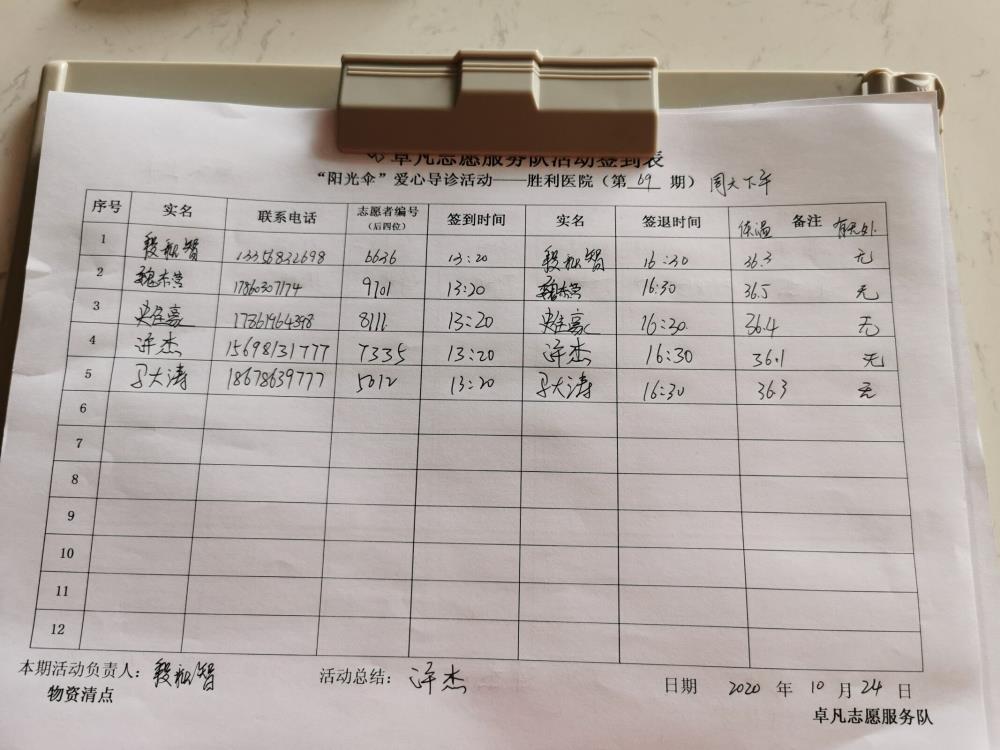 卓凡志愿服务队活动签到表
“阳光伞”爱心导诊活动——胜利医院（第 69 期） 周六下午
序号 实名 联系电话 志愿者编号（后四位） 签到时间 实名 签退时间 体温 备注 有无外
1 13356832698 6636 13:20 16:30 36.3 无
2 17860307174 9701 13:20 16:30 36.5 无
3 17861964398 8111 13:20 16:30 36.4 无
4 许杰 15698131777 7335 13:20 许杰 16:30 36.1 无
5 马大涛 18678639777 5012 13:20 马大涛 16:30 36.3 无
6
7
8
9
10
11
12
本期活动负责人： 活动总结： 许杰 日期 2020 年 10 月 24 日
物资清点 卓凡志愿服务队